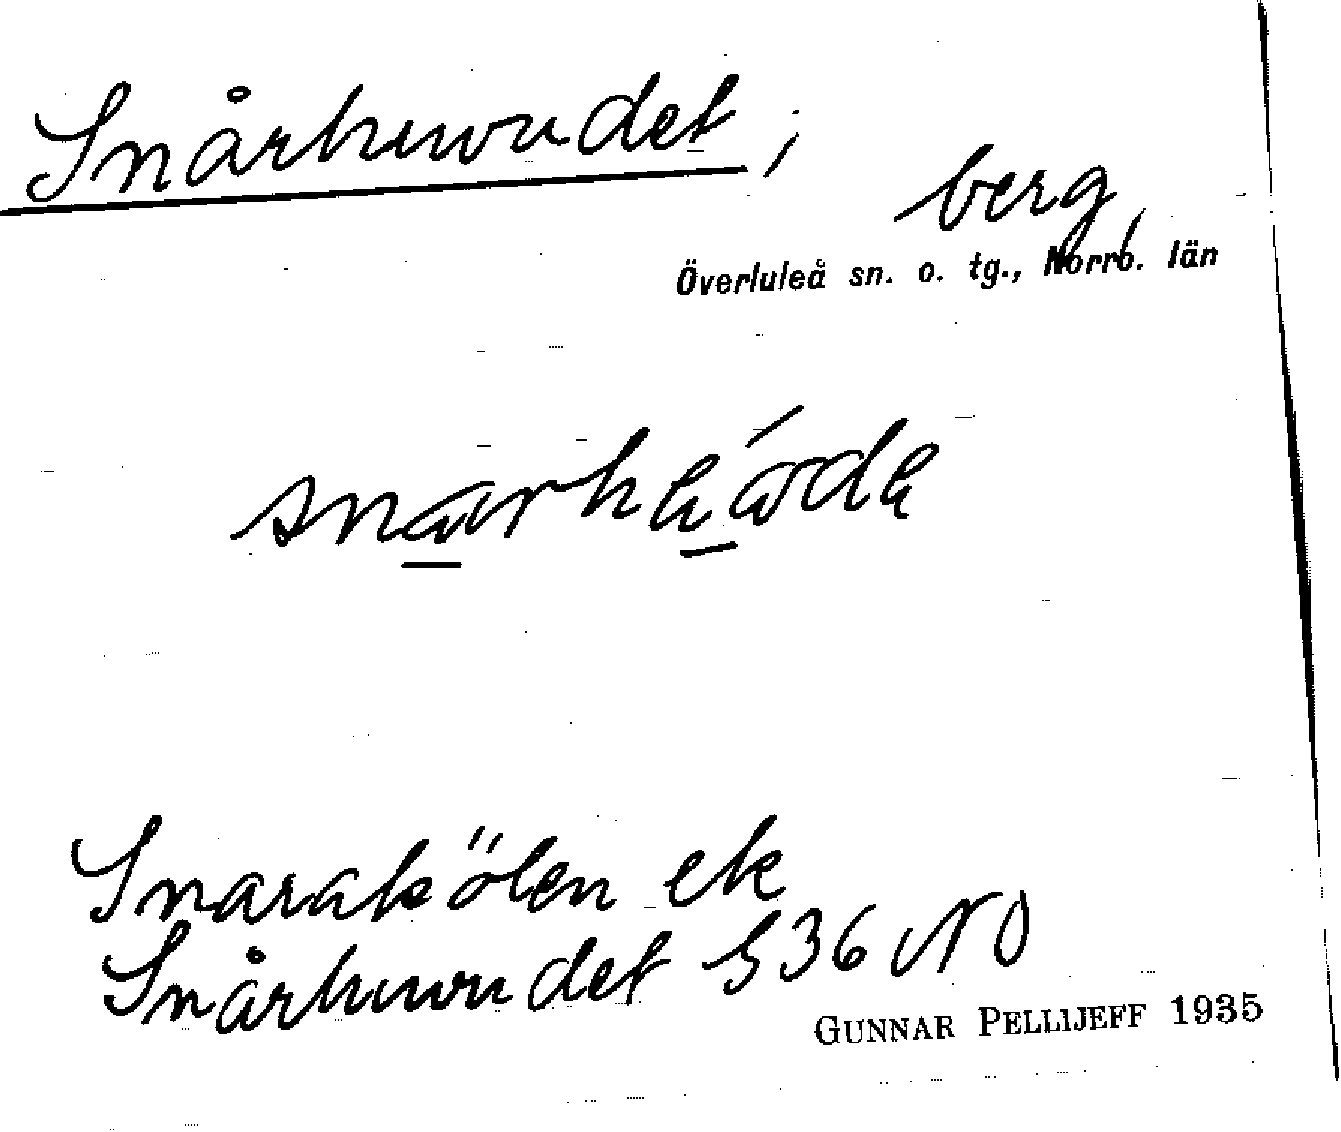 Snårhuvudet,
berg,
Överluleå sn. o. tg., Norrb. län
Snarakölen ek
Snårhuvudet S36 NO
GUNNAR PELLIJEFF 1935